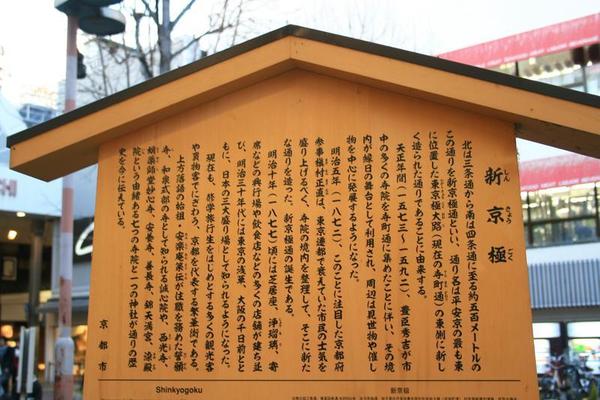 新京極
しんきょうごく
北は三条通から南は四条通に至る約五百メートルの
この通りを新京極通といい、通り名は平安京の最も東
に位置した東京極大路(現在の寺町通)の東側に新し
く造られた通りであることに由来する。
天正年間(一五七三〜一五九二)、豊臣秀吉が市
中の多くの寺院を寺町通に集めたことに伴い、その境
内が縁日の舞台として利用され、周辺は見世物や催し
物を中心に発展するようになった。
明治五年(一八七二)、このことに注目した京都府
参事槇村正直は、東京遷都で衰えていた市民の士気を
盛り上げるべく、寺院の境内を整理して、そこに新た
な通りを造った。新京極通の誕生である。
明治十年(一八七七)頃には芝居座、浄瑠璃、寄
席などの興行場や飲食店などの多くの店舗が建ち並
び、明治三十年代には東京の浅草、大阪の千日前とと
もに、日本の三大盛り場として知られるようになった。
現在も、修学旅行生をはじめとする多くの観光客
や買物客でにぎわう、京都を代表する繁華街である。
上方落語の祖、安楽庵策伝が住職を務めた誓願
寺、和泉式部の寺として知られる誠心院や、西光寺、
蛸薬師堂妙心寺、安養寺、善長寺、錦天満宮、染殿
院という由緒ある七つの寺院と一つの神社が通りの歴
史を今に伝えている。
京都市
Shinkyogoku
新京極